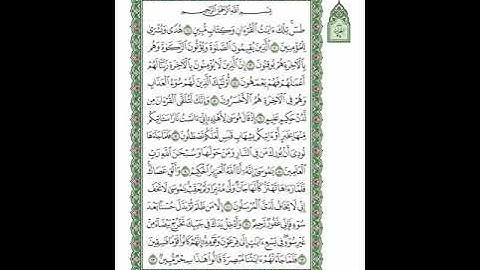 بِسْمِ ٱللَّهِ ٱلرَّحْمَٰنِ ٱلرَّحِيمِ
طسٓ تِلْكَ ءَايَٰتُ ٱلْقُرْءَانِ وَكِتَابٍ مُّبِينٍ ١ هُدًى وَبُشْرَىٰ
لِلْمُؤْمِنِينَ ٢ ٱلَّذِينَ يُقِيمُونَ ٱلصَّلَوٰةَ وَيُؤْتُونَ ٱلزَّكَوٰةَ وَهُم
بِٱلْءَاخِرَةِ هُمْ يُوقِنُونَ ٣ إِنَّ ٱلَّذِينَ لَا يُؤْمِنُونَ بِٱلْءَاخِرَةِ زَيَّنَّا لَهُمْ
أَعْمَٰلَهُمْ فَهُمْ يَعْمَهُونَ ٤ أُو۟لَٰٓئِكَ ٱلَّذِينَ لَهُمْ سُوٓءُ ٱلْعَذَابِ
وَهُمْ فِى ٱلْءَاخِرَةِ هُمُ ٱلْأَخْسَرُونَ ٥ وَإِنَّكَ لَتُلَقَّى ٱلْقُرْءَانَ مِن
لَّدُنْ حَكِيمٍ عَلِيمٍ ٦ إِذْ قَالَ مُوسَىٰ لِأَهْلِهِۦٓ إِنِّىٓ ءَانَسْتُ نَارًا سَـَٔاتِيكُم
مِّنْهَا بِخَبَرٍ أَوْ ءَاتِيكُم بِشِهَابٍ قَبَسٍ لَّعَلَّكُمْ تَصْطَلُونَ ٧ فَلَمَّا جَآءَهَا
نُودِىَ أَنۢ بُورِكَ مَن فِى ٱلنَّارِ وَمَنْ حَوْلَهَا وَسُبْحَٰنَ ٱللَّهِ رَبِّ
ٱلْعَٰلَمِينَ ٨ يَٰمُوسَىٰٓ إِنَّهُۥٓ أَنَا ٱللَّهُ ٱلْعَزِيزُ ٱلْحَكِيمُ ٩ وَأَلْقِ عَصَاكَ
فَلَمَّا رَءَاهَا تَهْتَزُّ كَأَنَّهَا جَآنٌّ وَلَّىٰ مُدْبِرًا وَلَمْ يُعَقِّبْ يَٰمُوسَىٰ لَا تَخَفْ
إِنِّى لَا يَخَافُ لَدَىَّ ٱلْمُرْسَلُونَ ١٠ إِلَّا مَن ظَلَمَ ثُمَّ بَدَّلَ حُسْنًۢا بَعْدَ
سُوٓءٍ فَإِنِّى غَفُورٌ رَّحِيمٌ ١١ وَأَدْخِلْ يَدَكَ فِى جَيْبِكَ تَخْرُجْ بَيْضَآءَ مِنْ
غَيْرِ سُوٓءٍ فِى تِسْعِ ءَايَٰتٍ إِلَىٰ فِرْعَوْنَ وَقَوْمِهِۦٓ إِنَّهُمْ كَانُوا۟ قَوْمًا فَٰسِقِينَ
١٢ فَلَمَّا جَآءَتْهُمْ ءَايَٰتُنَا مُبْصِرَةً قَالُوا۟ هَٰذَا سِحْرٌ مُّبِينٌ ١٣